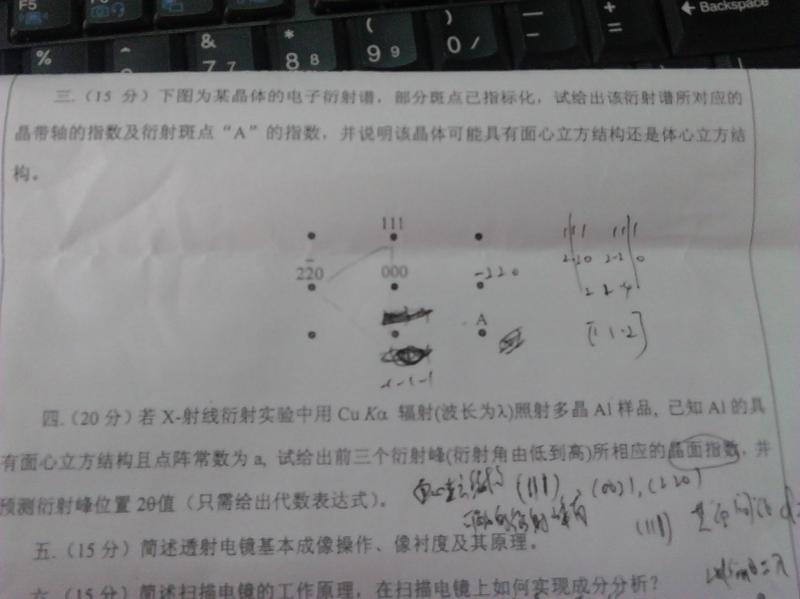 F5
F6
Backspace
%
^
&
7
7
*
8
8
(
9
9
)
0
/
—
-
+
=
三.（15 分）下图为某晶体的电子衍射谱，部分斑点已指标化，试给出该衍射谱所对应的
晶带轴的指数及衍射斑点“A”的指数，并说明该晶体可能具有面心立方结构还是体心立方结
构。
111
1 1 1 1 1 1
2̄20 000 -220
2 -2 0 2 -2 0
2 2 -4
A
[1 1 -2]
-1-1-1
四.（20 分）若 X-射线衍射实验中用 Cu Kα 辐射(波长为λ)照射多晶 Al 样品, 已知 Al 的具
有面心立方结构且点阵常数为 a, 试给出前三个衍射峰(衍射角由低到高)所相应的晶面指数, 并
预测衍射峰位置 2θ值（只需给出代数表达式）。
(111), (002), (220)
(111)
五.（15 分）简述透射电镜基本成像操作、像衬度及其原理。
2dsinθ=λ
六.（15 分）简述扫描电镜的工作原理，在扫描电镜上如何实现成分分析？